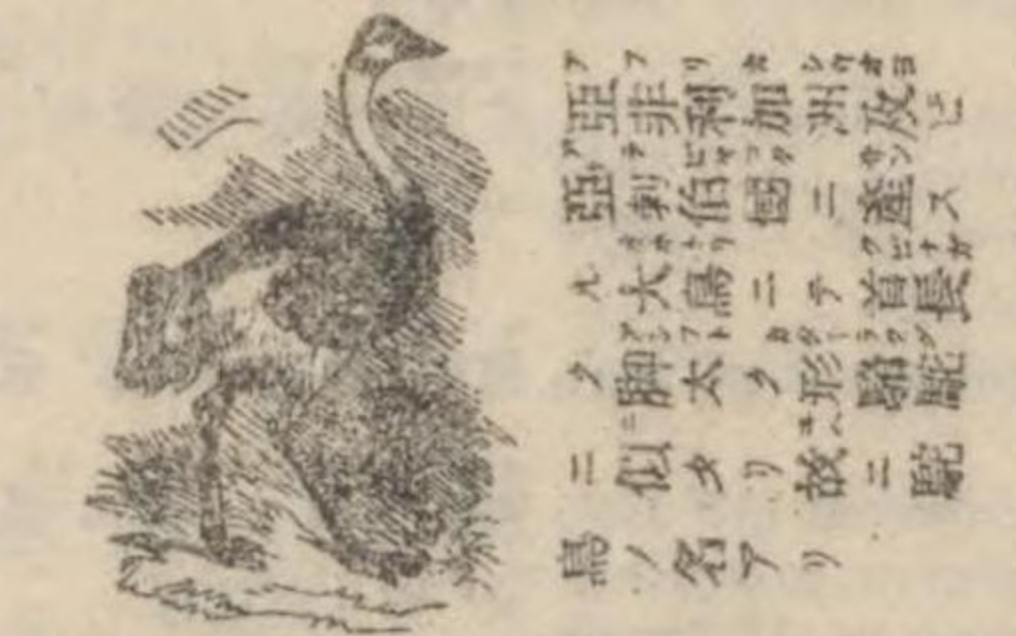 亞非利加洲及ビ
亞剌伯國ニ產ス
ル大鳥ニテ首長
ク脚太ク形駱駝
ニ似タリ故ニ駝
鳥ノ名アリ